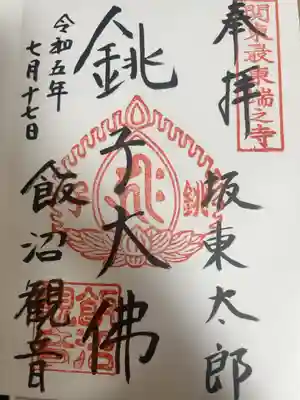 関東最東端之寺
奉拝
坂東太郎
銚子大佛
銚子
飯沼観音
飯沼観音
令和五年
七月十七日